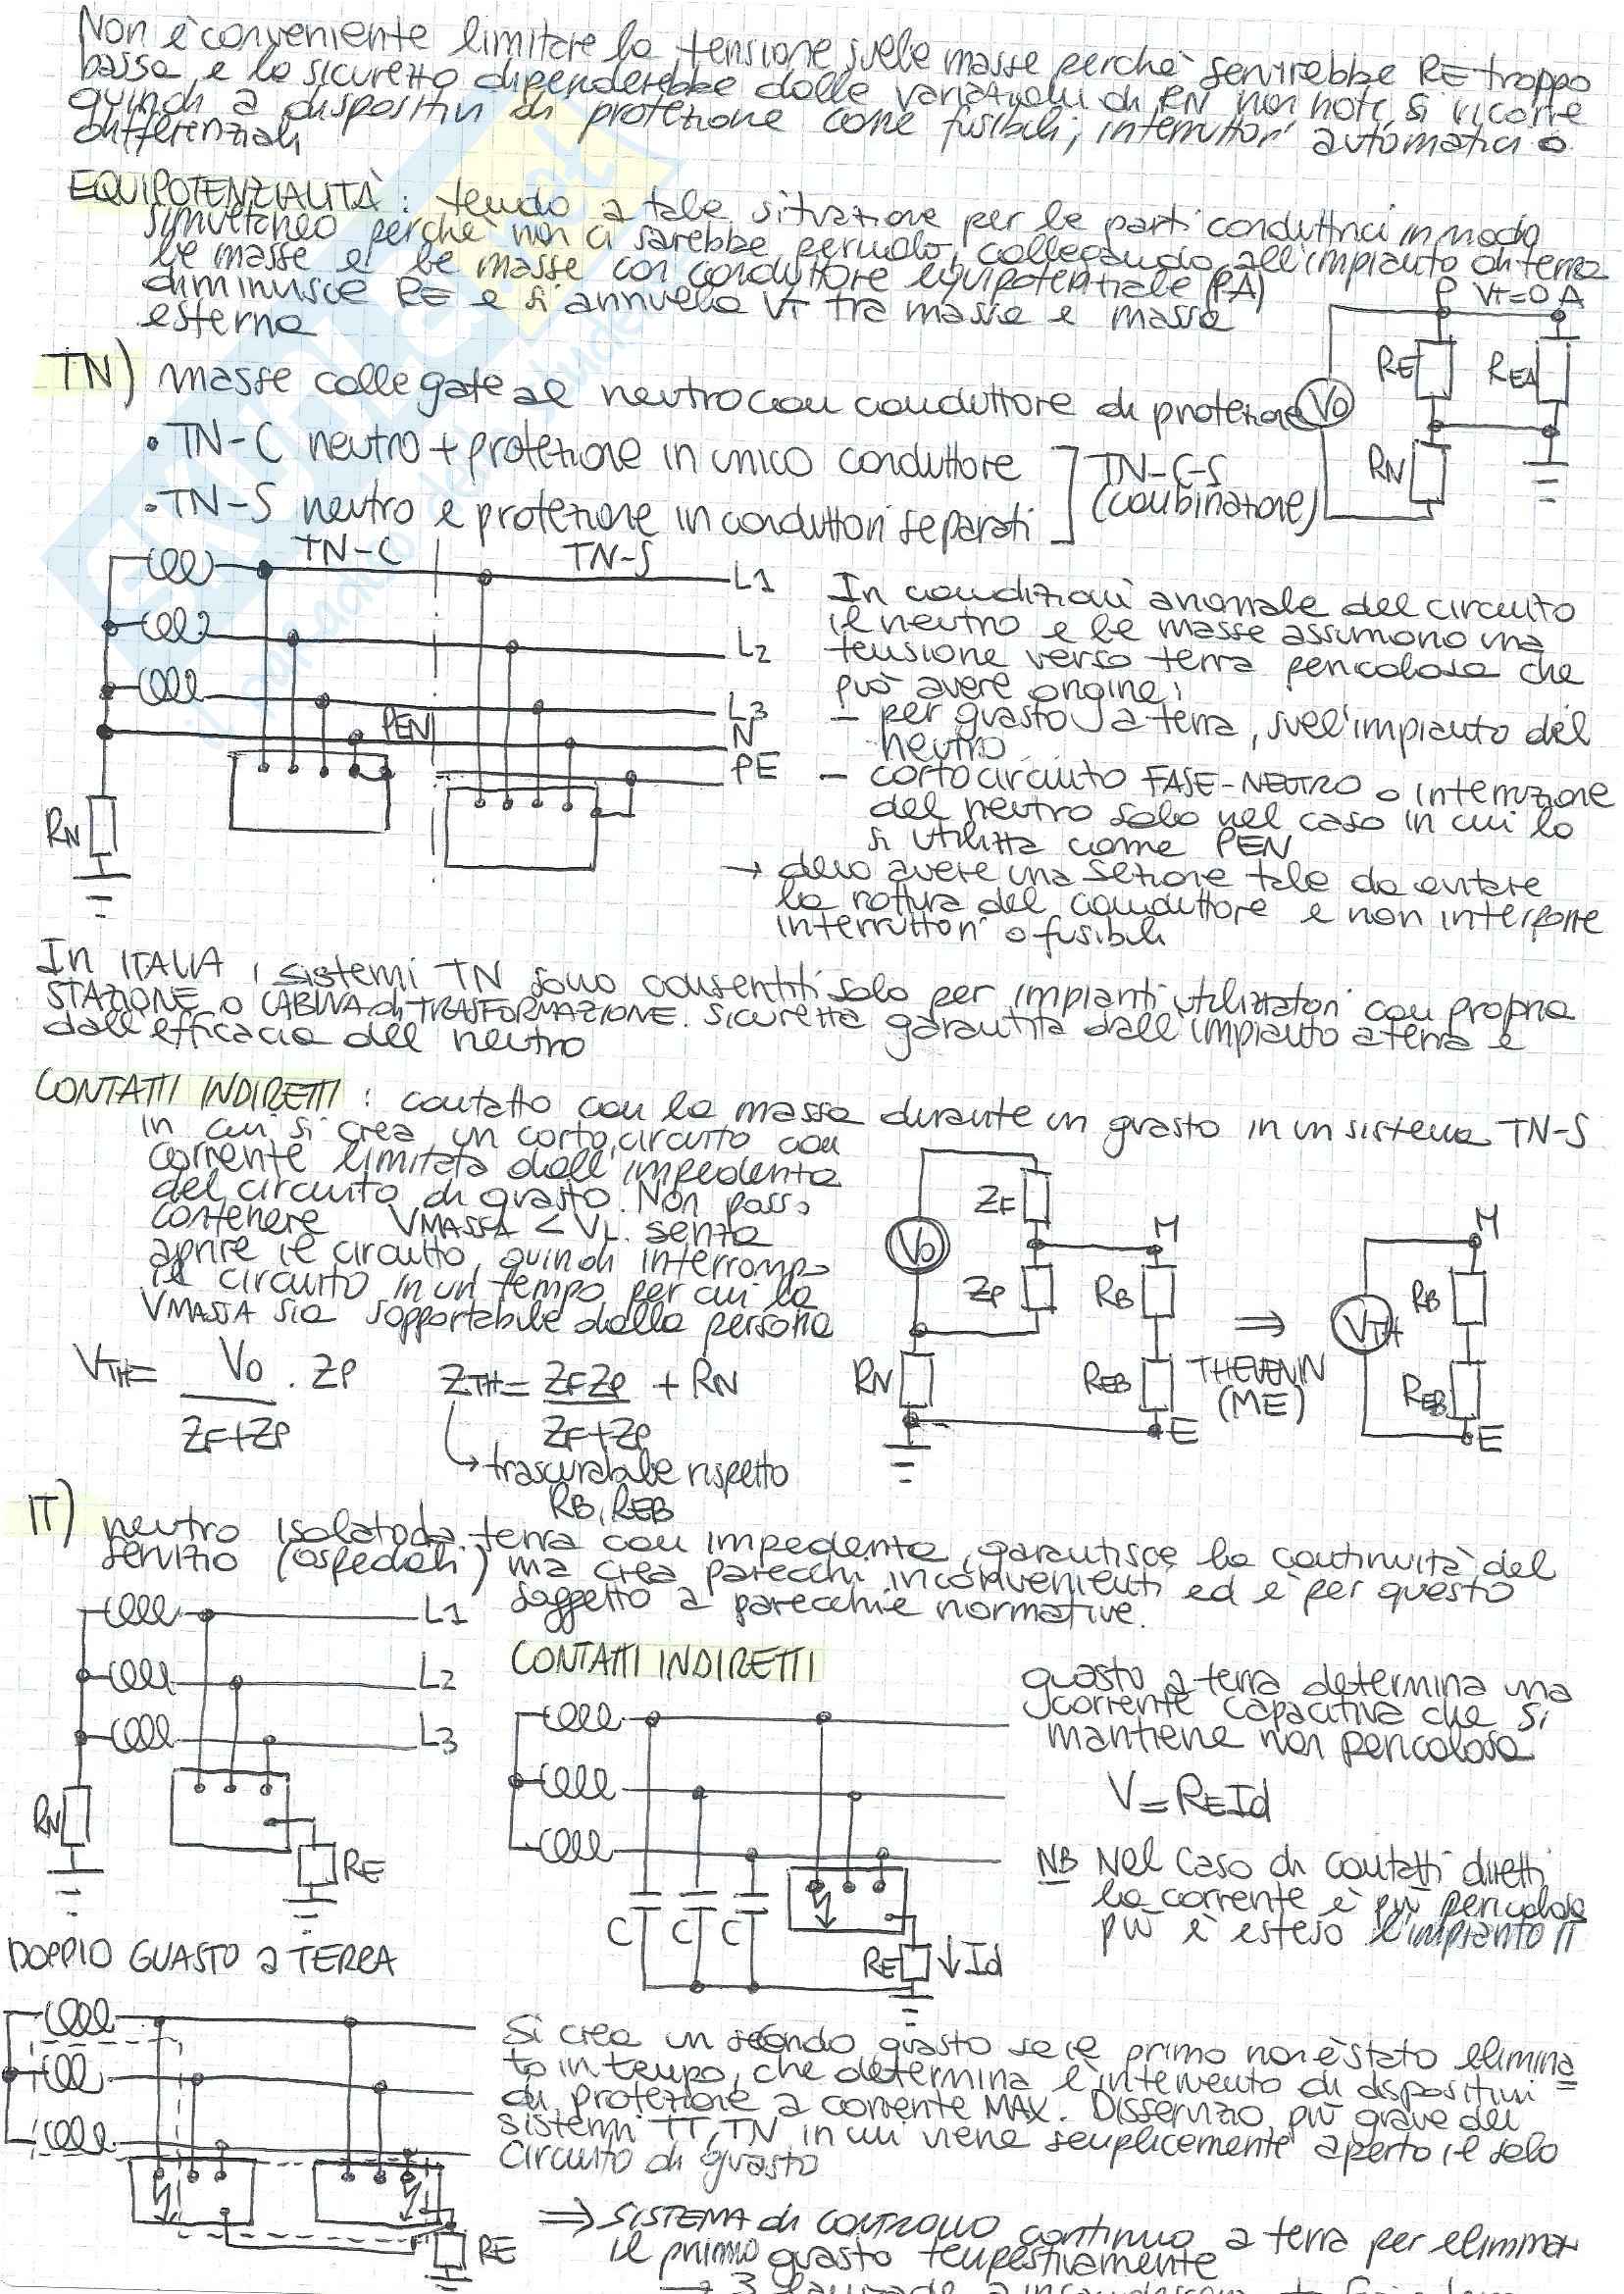 Non è conveniente limitare la tensione sulle masse perchè servirebbe RE troppo
bassa e la sicurezza dipenderebbe dalle variazioni di RN non note, si ricorre
quindi a dispositivi di protezione come fusibili, interruttori automatici o
differenziali
EQUIPOTENZIALITÀ: tendo a tale situazione per le parti conduttrici in modo
simultaneo perchè non ci sarebbe pericolo, collegando all'impianto di terra
le masse e le masse con conduttore equipotenziale (PA)
diminuisce RE e si annulla VT tra massa e massa
esterna
P VT=0 A
RE
REA
V0
RN
TN) masse collegate al neutro con conduttore di protezione
• TN-C neutro + protezione in unico conduttore
• TN-S neutro e protezione in conduttori separati
TN-C-S
(combinazione)
TN-C
TN-S
L1
L2
L3
N
PE
PEN
RN
In condizioni anomale del circuito
il neutro e le masse assumono una
tensione verso terra pericolosa che
può avere origine:
- per guasto a terra, sull'impianto del
neutro
- cortocircuito FASE-NEUTRO o interruzione
del neutro solo nel caso in cui lo
si utilizza come PEN
→ devo avere una sezione tale da evitare
la rottura del conduttore e non interporre
interruttori o fusibili
In ITALIA i sistemi TN sono consentiti solo per impianti utilizzatori con propria
STAZIONE o CABINA di TRASFORMAZIONE. Sicurezza garantita dall'impianto a terra e
dall'efficacia del neutro
CONTATTI INDIRETTI: contatto con la massa durante un guasto in un sistema TN-S
in cui si crea un corto circuito con
corrente limitata dall'impedenza
del circuito di guasto. Non posso
contenere VMASSA < VL senza
aprire il circuito, quindi interrompo
il circuito in un tempo per cui la
VMASSA sia sopportabile dalla persona
VTH = V0 / ZF+ZP . ZP
ZTH = ZFZP / ZF+ZP + RN
↳ trascurabile rispetto
RB, REB
ZF
V0
M
ZP
RB
RN
REB
E
⇒
THEVENIN
(ME)
M
VTH
RB
REB
E
IT) neutro isolato da terra con impedenza, garantisce la continuità del
servizio (ospedali) ma crea parecchi inconvenienti ed è per questo
soggetto a parecchie normative.
L1
L2
L3
RN
RE
CONTATTI INDIRETTI
C
C
C
RE ↓Id
guasto a terra determina una
corrente capacitiva che si
mantiene non pericolosa
V=REId
NB Nel caso di contatti diretti
la corrente è più pericolosa
più è esteso l'impianto IT
DOPPIO GUASTO a TERRA
RE
Si crea un secondo guasto se il primo non è stato elimina=
to in tempo, che determina l'intervento di dispositivi
di protezione a corrente MAX. Disservizio più grave dei
sistemi TT, TN in cui viene semplicemente aperto il solo
circuito di guasto
⇒ SISTEMA di CONTROLLO continuo a terra per eliminar
il primo guasto tempestivamente